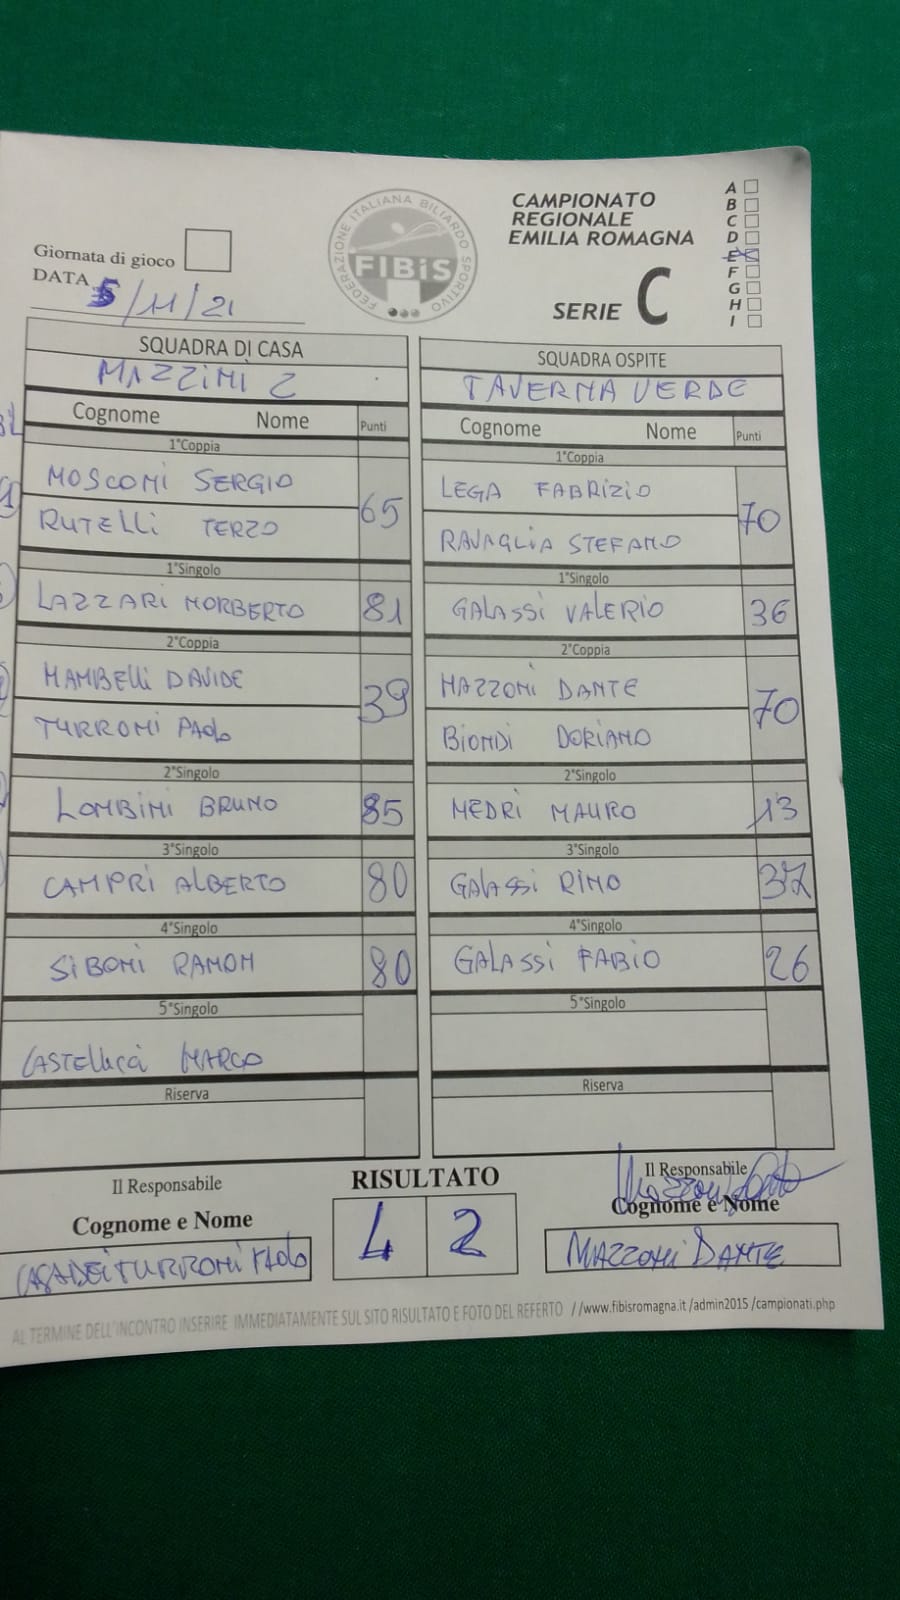 FEDERAZIONE ITALIANA BILIARDO SPORTIVO
FIBiS
CAMPIONATO
REGIONALE
EMILIA ROMAGNA
SERIE C
A
B
C
D
E
F
G
H
I
Giornata di gioco
DATA 5/11/21
SQUADRA DI CASA
MAZZINI 2
Cognome Nome Punti
1°Coppia
MOSCONI SERGIO
RUTELLI TERZO
65
1°Singolo
LAZZARI NORBERTO 81
2°Coppia
MAMBELLI DAVIDE
TURRONI PAOLO
39
2°Singolo
LOMBINI BRUNO 85
3°Singolo
CAMPRI ALBERTO 80
4°Singolo
SIBONI RAMON 80
5°Singolo
CASTELLUCCI MARCO
Riserva
SQUADRA OSPITE
TAVERNA VERDE
Cognome Nome Punti
1°Coppia
LEGA FABRIZIO
RAVAGLIA STEFANO
70
1°Singolo
GALASSI VALERIO 36
2°Coppia
MAZZONI DANTE
BIONDI DORIANO
70
2°Singolo
MEDRI MAURO 13
3°Singolo
GALASSI RINO 37
4°Singolo
GALASSI FABIO 26
5°Singolo
Riserva
Il Responsabile
Cognome e Nome
CASADEI TURRONI PAOLO
RISULTATO
4 2
Il Responsabile
Cognome e Nome
MAZZONI DANTE
AL TERMINE DELL'INCONTRO INSERIRE IMMEDIATAMENTE SUL SITO RISULTATO E FOTO DEL REFERTO //www.fibisromagna.it/admin2015/campionati.php